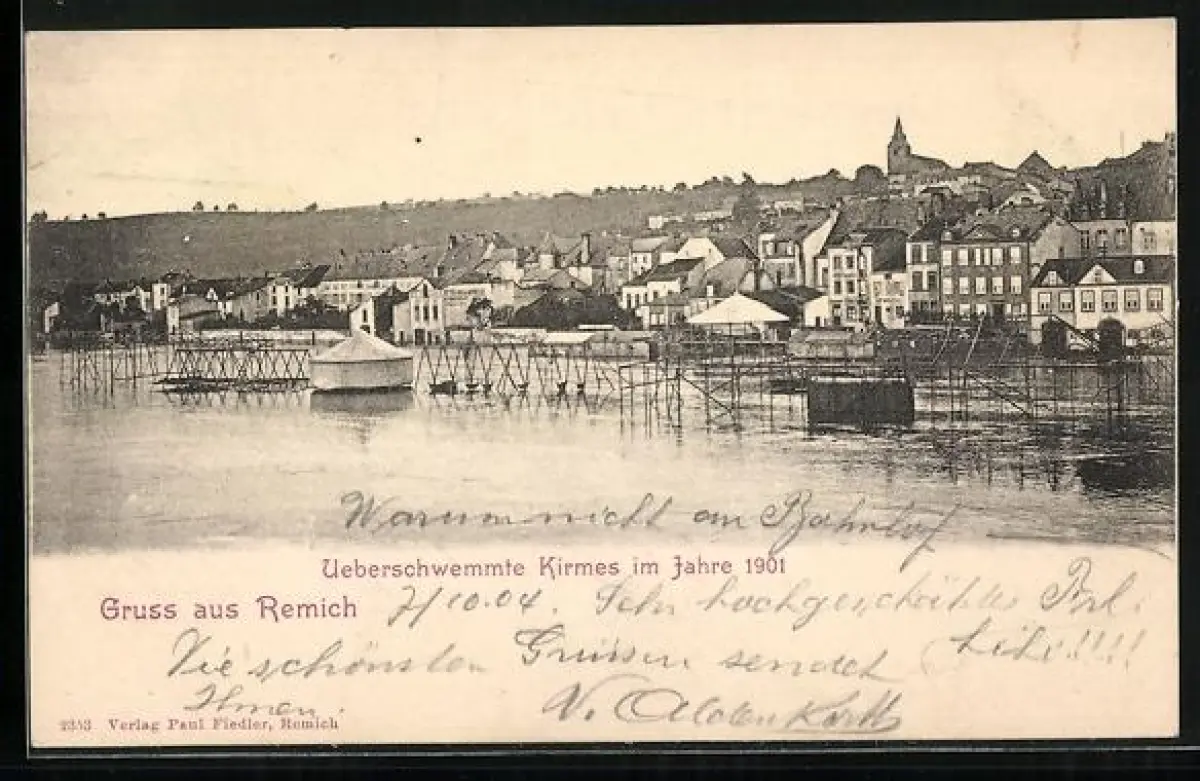 Warum nicht am Bahnhof
Ueberschwemmte Kirmes im Jahre 1901
Gruss aus Remich
7/10.04. Sehr hochgeschätztes
Die schönsten Grüssen sendet
Ihnen.
2353 Verlag Paul Fiedler, Remich